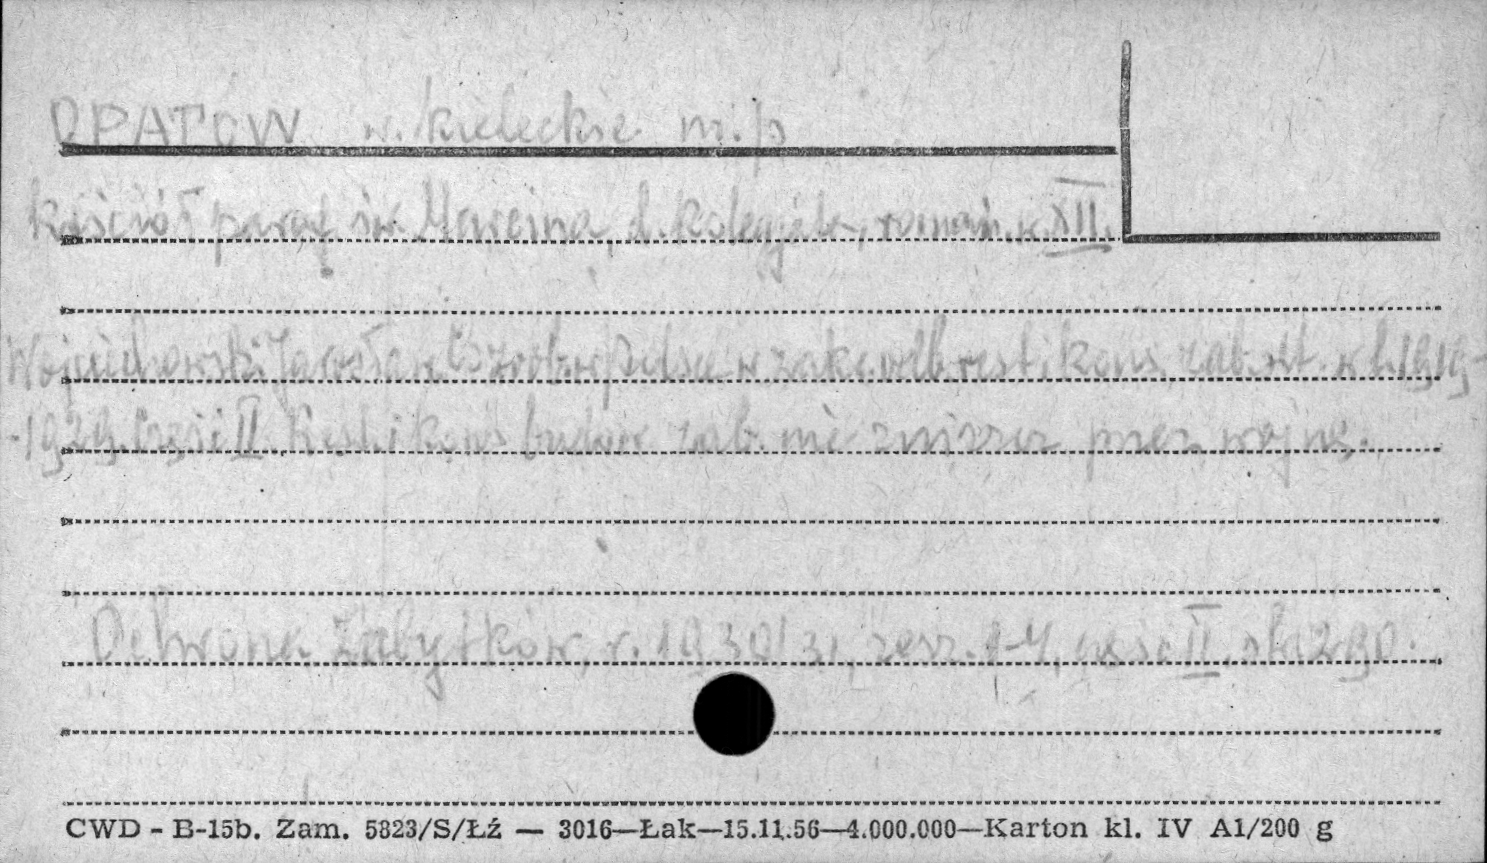 OPATÓW w. kieleckie m. p
Kościół paraf. św. Marcina, d. kolegiata, romań. w. XII.
Wojciechowski Jarosław Co zrob. w Polsce w zakr. odb. rest. i kons. zab. szt. w l. 1919-
-1929. Część II. Rest. i kons. budow. zab. nie zniszcz. przez wojnę.
Ochrona Zabytków, r. 1930/31, zesz. 1-4, część II, str. 290.
CWD - B-15b. Zam. 5823/S/Łź — 3016—Łak—15.11.56—4.000.000—Karton kl. IV A1/200 g